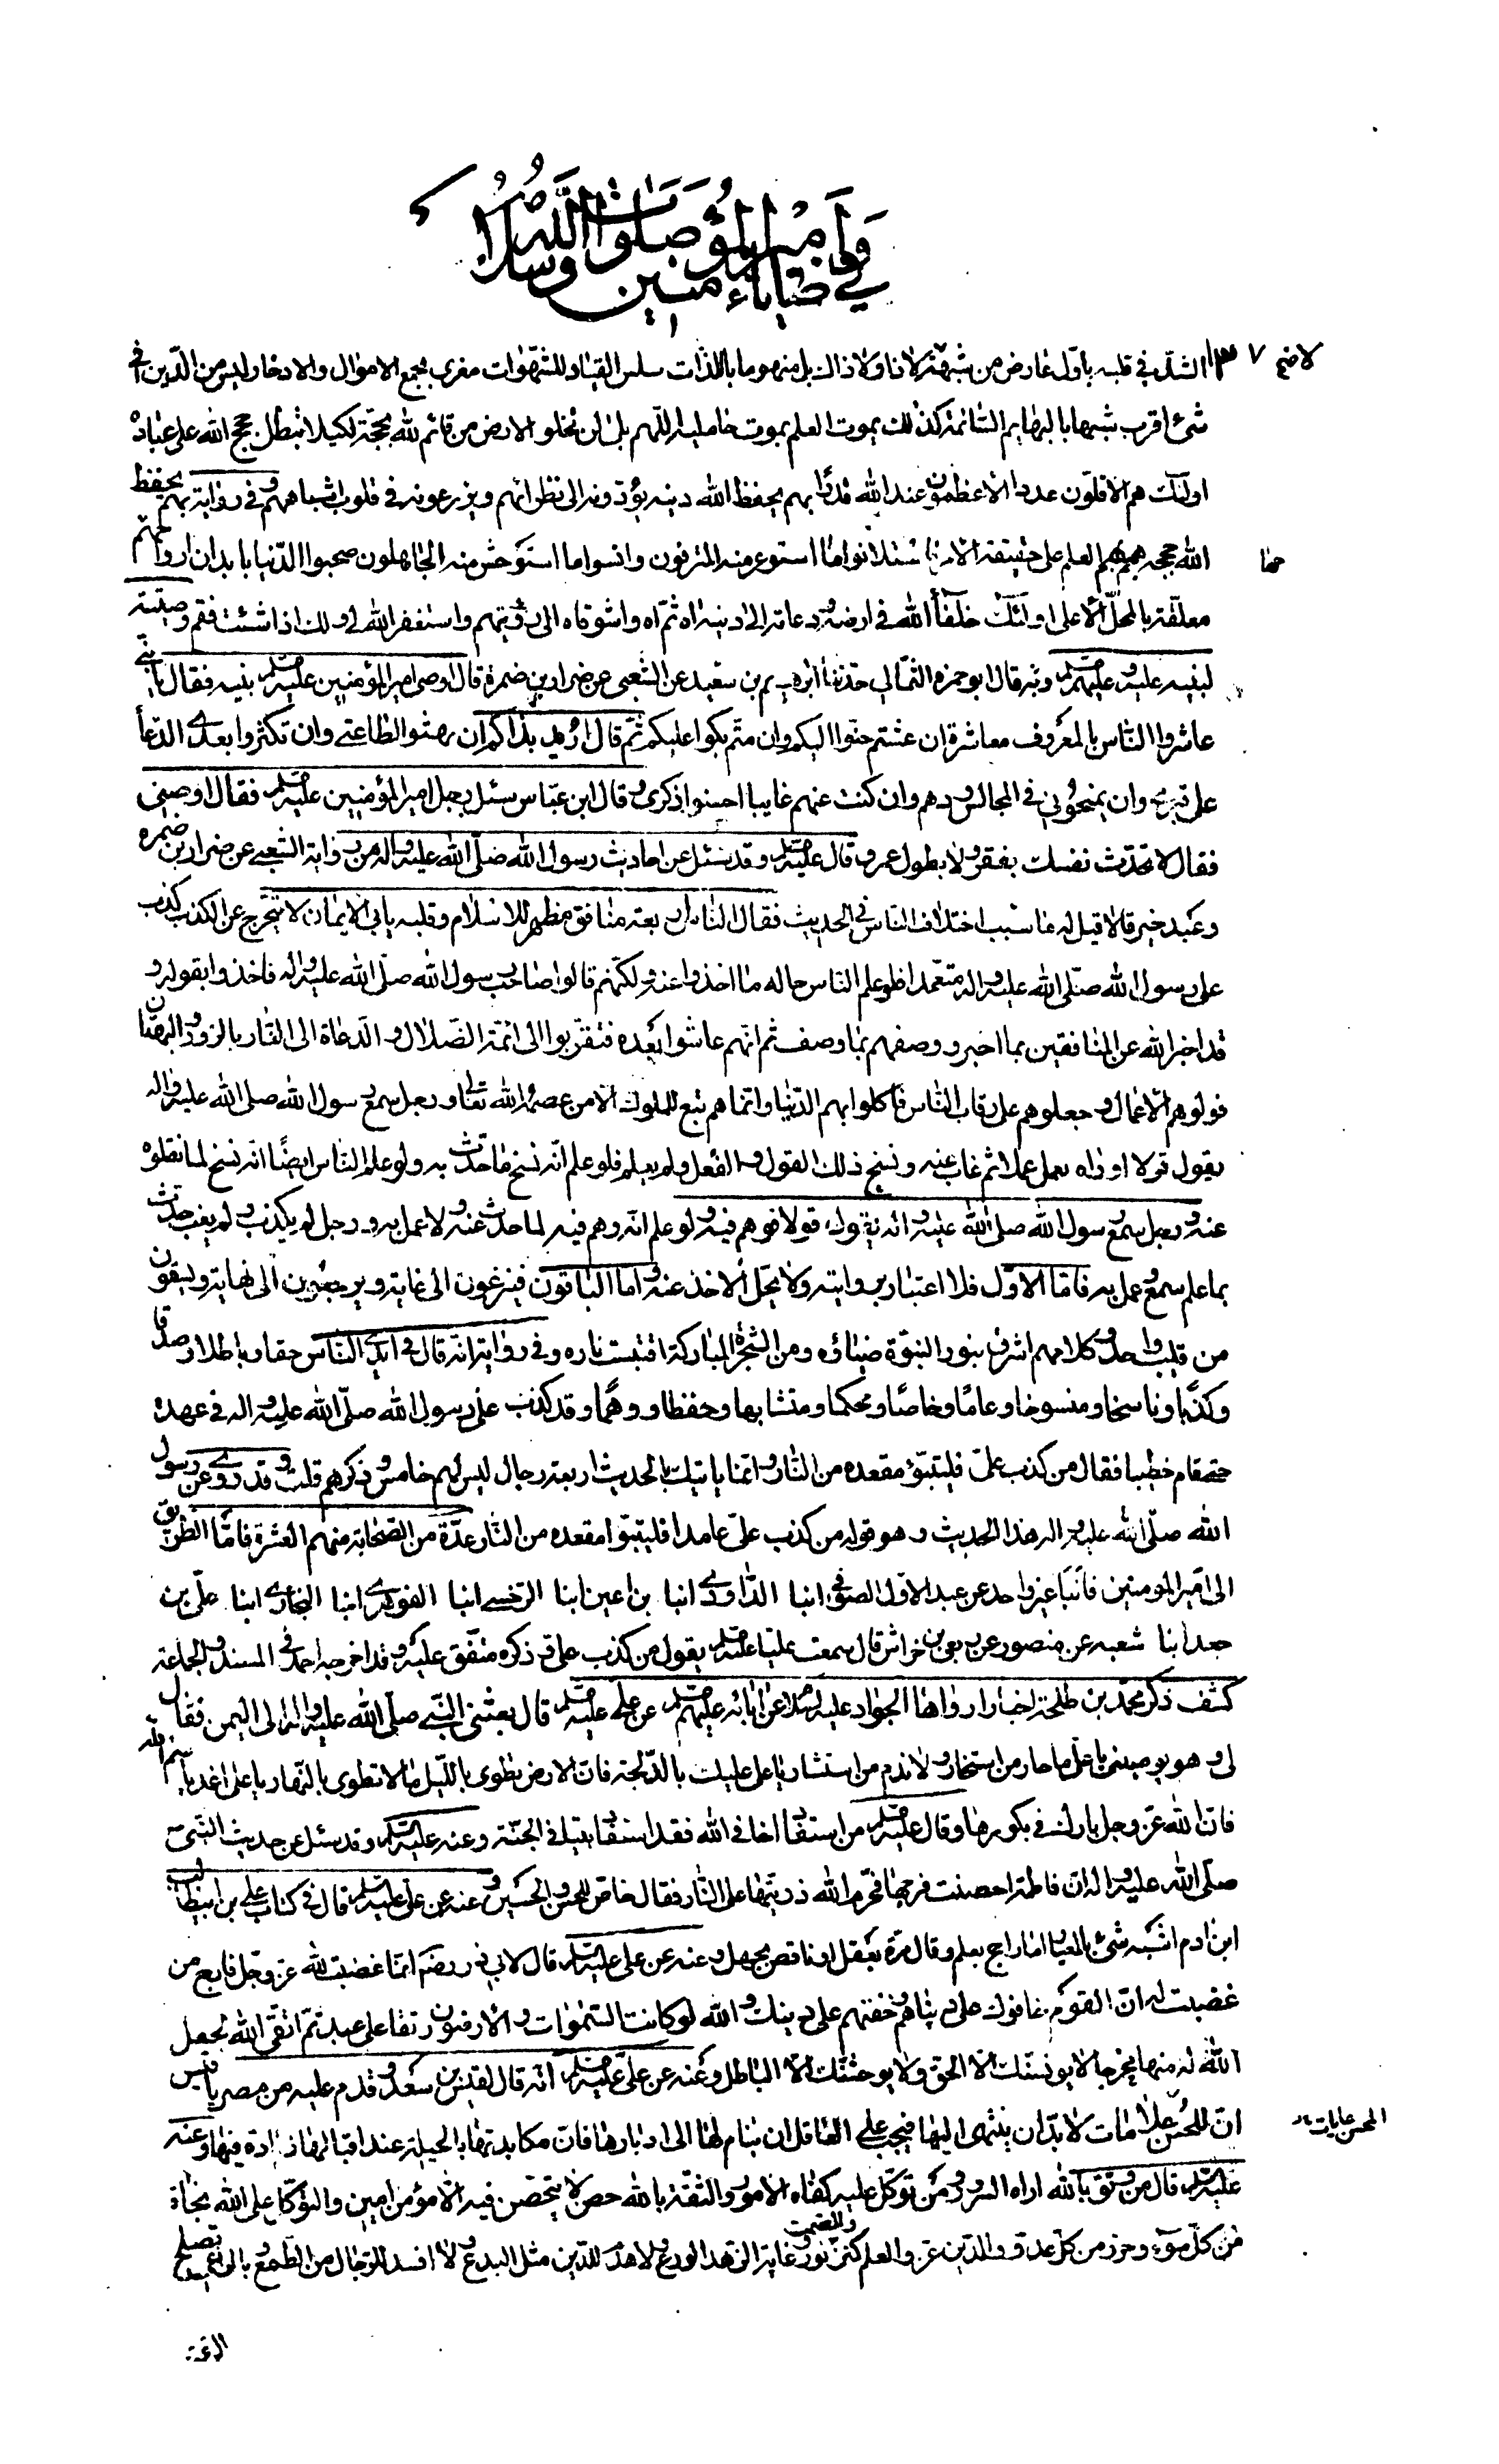 في وصايا امير المؤمنين صلوات الله وسلامه
الشك في قلبه باول عارض من شبهة لا ذا ولا ذاك بل منهوما باللذات سلس القياد للشهوات مغرى بجمع الاموال والادخار وليس من الدين في
شئ اقرب شبها بالبهايم السائمة كذلك يموت العلم بموت حامليه اللهم بلى لن تخلو الارض من قائم لله بحجة لكيلا تبطل حجج الله على عباده
اولئك هم الاقلون عددا الاعظمون عند الله قدرا بهم يحفظ الله دينه يؤدونه الى نظرائهم ويزرعونه في قلوب اشباههم وفي رواية بهم يحفظ
الله حججه هجم بهم العلم على حقيقة الامر فاستلانوا ما استوعر منه المترفون وانسوا ما استوحش منه الجاهلون صحبوا الدنيا بابدان ارواحهم
معلقة بالمحل الاعلى اولئك خلفاء الله في ارضه ودعاته الى دينه اه ثم اه واشوقاه الى رؤيتهم واستغفر الله لي ولك اذا شئت فقم وصيته
لبنيه عليه وعليهم السلم وبه قال ابو حمزة الثمالي حدثنا ابراهيم بن سعيد عن الشعبي عن ضرار بن ضمرة قال اوصى امير المؤمنين عليه السلم بنيه فقال يا بني
عاشروا الناس بالمعروف معاشرة ان عشتم حنوا اليكم وان متم بكوا عليكم ثم قال اريد بذاكم ان تهشوا لطاعتي وان تكثروا بعدي الدعاء
على قبري وان يمنحوني في المجالس ودهم وان كنت عنهم غايبا احسنوا ذكرى وقال ابن عباس سئل رجل امير المؤمنين عليه السلم فقال اوصني
فقال لا تحدث نفسك بفقر ولا بطول عمر وقال عليه السلم وقد سئل عن احاديث رسول الله صلى الله عليه واله من رواية الشعبي عن ضرار بن ضمره
وعبد خير قالا قيل له ما سبب اختلاف الناس في الحديث فقال الناس اربعة منافق مظهر للاسلام وقلبه يابى الايمان لا يتحرج عن الكذب كذب
على رسول الله صلى الله عليه واله متعمدا فلو علم الناس حاله ما اخذوا عنه ولكنهم قالوا صاحب رسول الله صلى الله عليه واله فاخذوا بقوله و
قد اخبر الله عن المنافقين بما اخبر ووصفهم بما وصف ثم انهم عاشوا بعده فتقربوا الى ائمة الضلال والدعاة الى النار بالزور والبهتان
فولوهم الاعمال وجعلوهم على رقاب الناس فاكلوا بهم الدنيا وانما هم تبع للملوك الا من عصمه الله تعالى ورجل سمع رسول الله صلى الله عليه واله
يقول قولا او راه يعمل عملا ثم غاب عنه ونسخ ذلك القول والفعل ولم يعلم فلو علم انه نسخ ما حدث به ولو علم الناس ايضا انه نسخ لما نقلوه
عنه ورجل سمع رسول الله صلى الله عليه واله يقول قولا فوهم فيه ولو علم انه وهم فيه لما حدث عنه ولا عمل به ورجل لم يكذب ولم يغب حدث
بما علم سمع وعمل به فاما الاول فلا اعتبار بروايته ولا يحل الاخذ عنه واما الباقون فينزعون الى غاية ويرجعون الى نهاية ويسقون
من قليب واحد وكلامهم اشرق بنور النبوة ضياؤه ومن الشجرة المباركة اقتبست ناره وفي رواية انه قال في ايدي الناس حقا وباطلا وصدقا
وكذبا وناسخا ومنسوخا وعاما وخاصا ومحكما ومتشابها وحفظا ووهما وقد كذب على رسول الله صلى الله عليه واله في عهده
حتى قام خطيبا فقال من كذب علي فليتبوء مقعده من النار وانما ياتيك بالحديث اربعة رجال ليس لهم خامس وذكرهم قلت وقد روى عن رسول
الله صلى الله عليه واله هذا الحديث وهو قوله من كذب علي عامدا فليتبوا مقعده من النار عدة من الصحابة منهم العشرة فاما الطريق
الى امير المومنين فانبا غير واحد عن عبد الاول الصوفي انبا الداودي انبا بن اعين ابنا السرخسي انبا الفربري انبا البخاري ابنا علي بن
جعد ابنا شعبه عن منصور عن ربعي بن خراش قال سمعت عليا عليه السلم يقول من كذب علي وذكره متفق عليه وقد اخرجه احمد في المسند والجماعة
كشف ذكر محمد بن طلحة اخبارا رواها الجواد عليه السلم عن ابائه عليهم السلم عن علي عليه السلم قال بعثني النبي صلى الله عليه واله الى اليمن فقال
لي وهو يوصيني يا علي ما حار من استخار ولا ندم من استشار يا علي عليك بالدلجة فان الارض تطوى بالليل ما لا تطوى بالنهار يا علي اغد بسم الله
فان الله عز وجل بارك في بكورها وقال عليه السلم من استفاد اخا في الله فقد استفاد بيتا في الجنة وعنه عليه السلم وقد سئل عن حديث النبي
صلى الله عليه واله ان فاطمة احصنت فرجها فحرم الله ذريتها على النار فقال خاص للحسن والحسين وعنه عن علي عليه السلم قال في كتاب علي بن ابيطالب
ابن ادم اشبه شئ بالمعيار اما راجح بعلم وقال مرة بعقل او ناقص بجهل وعنه عن علي عليه السلم قال لابي ذر رضه انما غضبت لله عز وجل فارج من
غضبت له ان القوم خافوك على دنياهم وخفتهم على دينك والله لو كانت السموات والارضون رتقا على عبد ثم اتقى الله لجعل
الله له منها مخرجا لا يونسنك الا الحق ولا يوحشنك الا الباطل وعنه عن علي عليه السلم انه قال لقيس بن سعد وقدم عليه من مصر يا قيس
ان للمحن علامات لا بد ان ينتهى اليها فيجب على العاقل ان ينام لها الى ادبارها فان مكابدتها بالحيلة عند اقبالها زيادة فيها وعنه
عليه السلم قال من وثق بالله اراه السرور ومن توكل عليه كفاه الامور والثقة بالله حصن لا يتحصن فيه الا مؤمن امين والتوكل على الله نجاة
من كل سوء وحرز من كل عدو والدين عز والعلم كنز والصمت نور وغاية الزهد الورع ولا هدم للدين مثل البدع ولا افسد للرجال من الطمع و بالراعي تصلح
الرعية